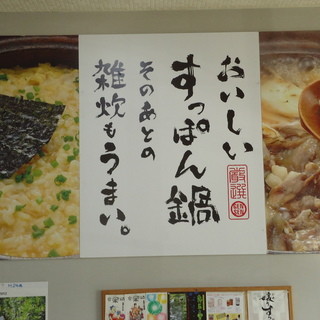 おいしい
すっぽん鍋
そのあとの
雑炊もうまい。
厳選